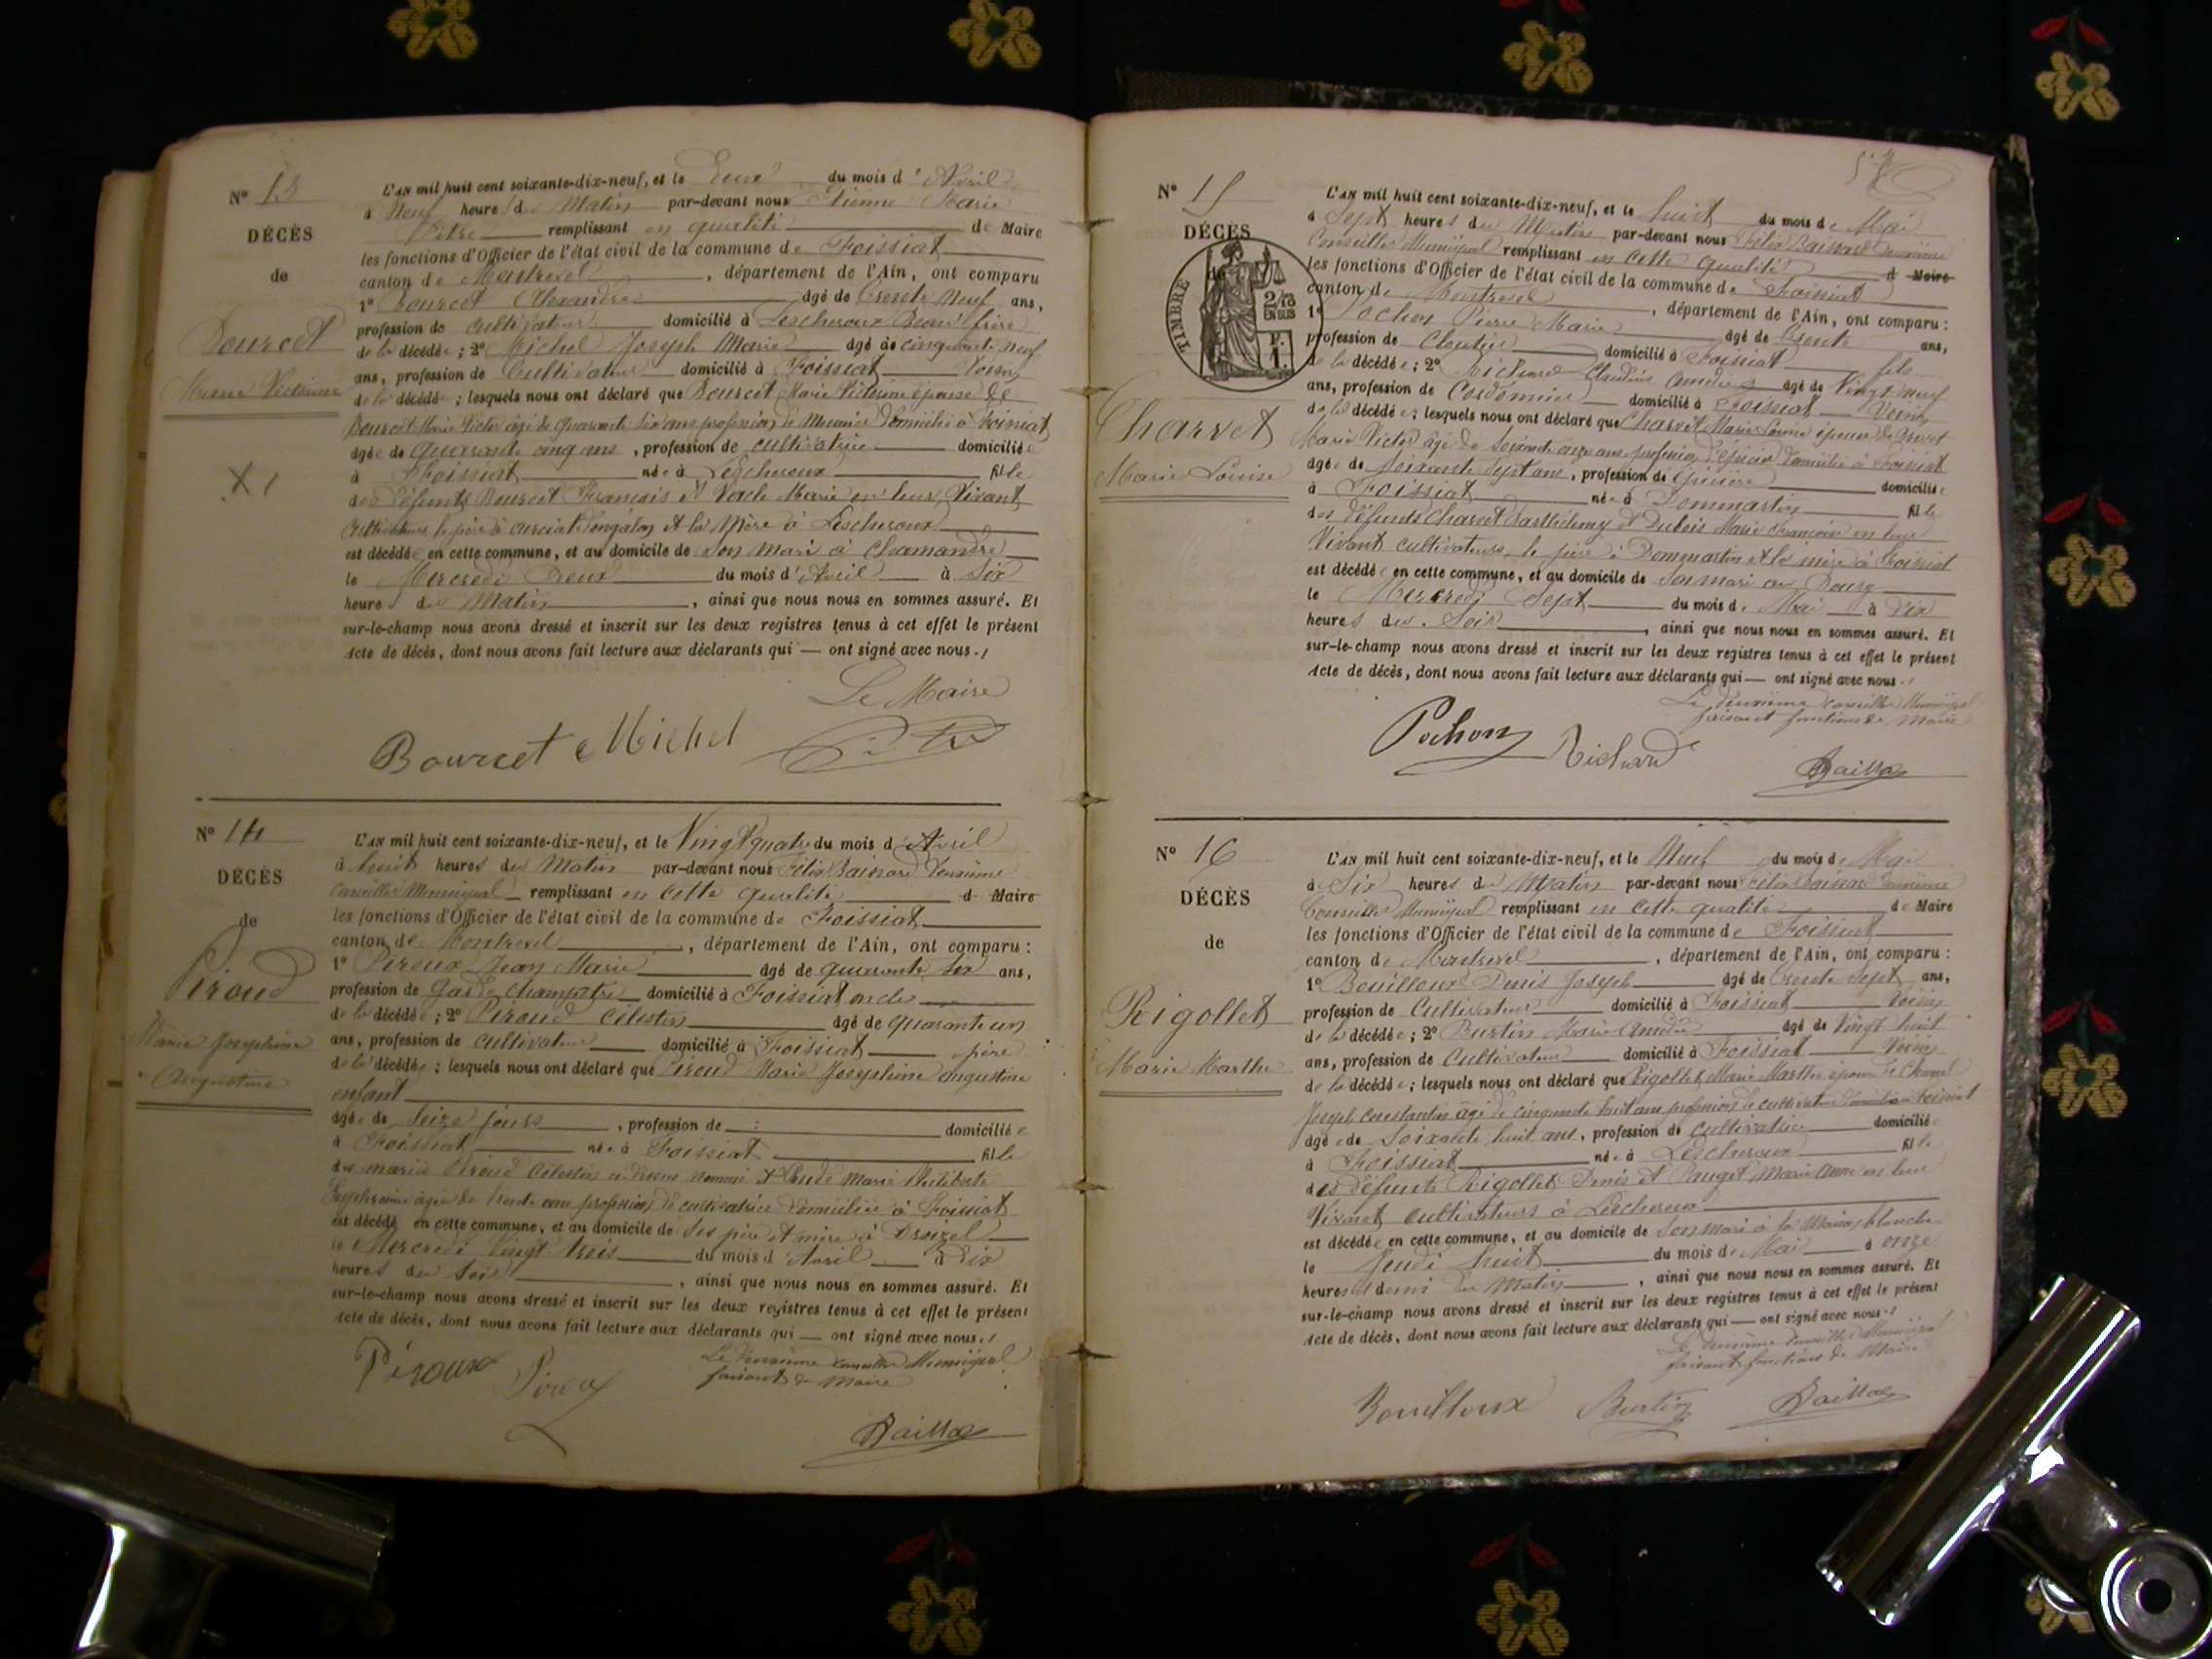 N° 13
DÉCÈS
de
Bourcet
Marie Victorine
L'AN mil huit cent soixante-dix-neuf, et le Deux du mois d'Avril
à Neuf heures du Matin par-devant nous Etienne Marie
Pitre remplissant en qualité de Maire
les fonctions d'Officier de l'état civil de la commune de Foissiat
canton de Montrevel, département de l'Ain, ont comparu
1° Bourcet Alexandre âgé de trente neuf ans,
profession de cultivateur domicilié à Lescheroux Beau frère
de la décédée; 2° Michel Joseph Marie âgé de cinquante neuf
ans, profession de Cultivateur domicilié à Foissiat Voisin
de la décédée; lesquels nous ont déclaré que Bourcet Marie Victorine épouse de
Bourcet Marie Victor âgé de quarante six ans profession de Meunier domicilié à Foissiat
âgée de quarante cinq ans, profession de cultivatrice domiciliée
à Foissiat née à Lescheroux fille
des défunts Bourcet François et Marie en leur Vivant
cultivateurs le père à Curciat Dongalon et la Mère à Lescheroux
est décédée en cette commune, et au domicile de son mari à Chamandre
le Mercredi Deux du mois d'Avril à Six
heures du Matin, ainsi que nous nous en sommes assuré. Et
sur-le-champ nous avons dressé et inscrit sur les deux registres tenus à cet effet le présent
Acte de décès, dont nous avons fait lecture aux déclarants qui — ont signé avec nous./
Le Maire
Bourcet Michel
N° 14
DÉCÈS
de
Piroud
Marie Joséphine
Augustine
L'AN mil huit cent soixante-dix-neuf, et le Vingt quatre du mois d'Avril
à huit heures du Matin par-devant nous Félix Baissard Deuxième
Conseiller Municipal remplissant en cette qualité d Maire
les fonctions d'Officier de l'état civil de la commune de Foissiat
canton de Montrevel, département de l'Ain, ont comparu:
1° Peroux Jean Marie âgé de quarante six ans,
profession de Garde champêtre domicilié à Foissiat oncle
de la décédée; 2° Piroud Célestin âgé de quarante un
ans, profession de cultivateur domicilié à Foissiat père
de la décédée; lesquels nous ont déclaré que Piroud Marie Joséphine Augustine
enfant
âgée de Seize jours, profession de domiciliée
à Foissiat née à Foissiat fille
des mariés Piroud Célestin ci dessus nommé et Marie
âgée de trente ans profession de cultivatrice domiciliée à Foissiat
est décédé en cette commune, et au domicile de ses père et mère à Droizel
le Mercredi Vingt trois du mois d'Avril à Dix
heures du Soir, ainsi que nous nous en sommes assuré. Et
sur-le-champ nous avons dressé et inscrit sur les deux registres tenus à cet effet le présent
Acte de décès, dont nous avons fait lecture aux déclarants qui — ont signé avec nous./
Le Deuxième Conseiller Municipal
faisant de Maire
Péroux
N° 15
DÉCÈS
de
TIMBRE
2/10
EN SUS
F.
1.
Charvet
Marie Louise
L'AN mil huit cent soixante-dix-neuf, et le huit du mois de Mai
à Sept heures du Matin par-devant nous Félix Baissard Deuxième
Conseiller Municipal remplissant en Cette qualité d Maire
les fonctions d'Officier de l'état civil de la commune de Foissiat
canton de Montrevel, département de l'Ain, ont comparu:
1° Pochon Pierre Marie âgé de trente ans,
profession de Cloutier domicilié à Foissiat fils
de la décédée; 2° Richard Claudius Amédée âgé de Vingt neuf
ans, profession de Cordonnier domicilié à Foissiat Voisin
de la décédée; lesquels nous ont déclaré que Charvet Marie Louise épouse de
Marie Victor âgé de soixante onze ans profession d'épicier domicilié à Foissiat
âgée de soixante sept ans, profession de épicière domiciliée
à Foissiat née à Dommartin fille
des défunts Charvet Barthélemy et Dubois Marie Françoise en leur
Vivant cultivateurs le père à Dommartin et la mère à Foissiat
est décédée en cette commune, et au domicile de son mari au Bourg
le Mercredi Sept du mois de Mai à Dix
heures du Soir, ainsi que nous nous en sommes assuré. Et
sur-le-champ nous avons dressé et inscrit sur les deux registres tenus à cet effet le présent
Acte de décès, dont nous avons fait lecture aux déclarants qui — ont signé avec nous./
Le Deuxième Conseiller Municipal
faisant fonctions de Maire
Pochon Richard
N° 16
DÉCÈS
de
Rigollet
Marie Marthe
L'AN mil huit cent soixante-dix-neuf, et le Neuf du mois de Mai
à Six heures du Matin par-devant nous Félix Baissard Deuxième
Conseiller Municipal remplissant en cette qualité de Maire
les fonctions d'Officier de l'état civil de la commune de Foissiat
canton de Montrevel, département de l'Ain, ont comparu:
1° Bouilloux Denis Joseph âgé de trente Sept ans,
profession de Cultivateur domicilié à Foissiat Voisin
de la décédée; 2° Burtin Marie Amédée âgé de Vingt huit
ans, profession de Cultivateur domicilié à Foissiat Voisin
de la décédée; lesquels nous ont déclaré que Rigollet Marie Marthe épouse de
Joseph Constantin âgé de cinquante huit ans profession de cultivateur domicilié à Foissiat
âgée de Soixante huit ans, profession de cultivatrice domiciliée
à Foissiat née à Lescheroux fille
des défunts Rigollet Denis et Pauget Marie Anne en leur
Vivant cultivateurs à Lescheroux
est décédée en cette commune, et au domicile de son mari à la Maison blanche
le Jeudi huit du mois de Mai à onze
heures et demi du Matin, ainsi que nous nous en sommes assuré. Et
sur-le-champ nous avons dressé et inscrit sur les deux registres tenus à cet effet le présent
Acte de décès, dont nous avons fait lecture aux déclarants qui — ont signé avec nous./
Le Deuxième Conseiller Municipal
faisant fonctions de Maire
Bouilloux Burtin